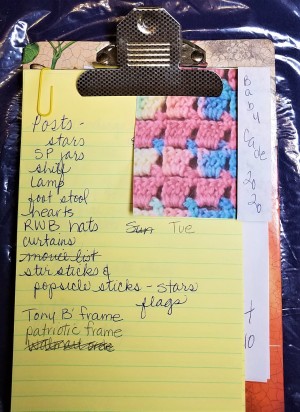 Posts -
stars
SP jars
shelf
lamp
foot stool
hearts
RWB hats
Sun Tue
curtains
movie list
star sticks &
popsicle sticks - stars
flags
Tony B' frame
patriotic frame
Baby
Cade
20
20
10